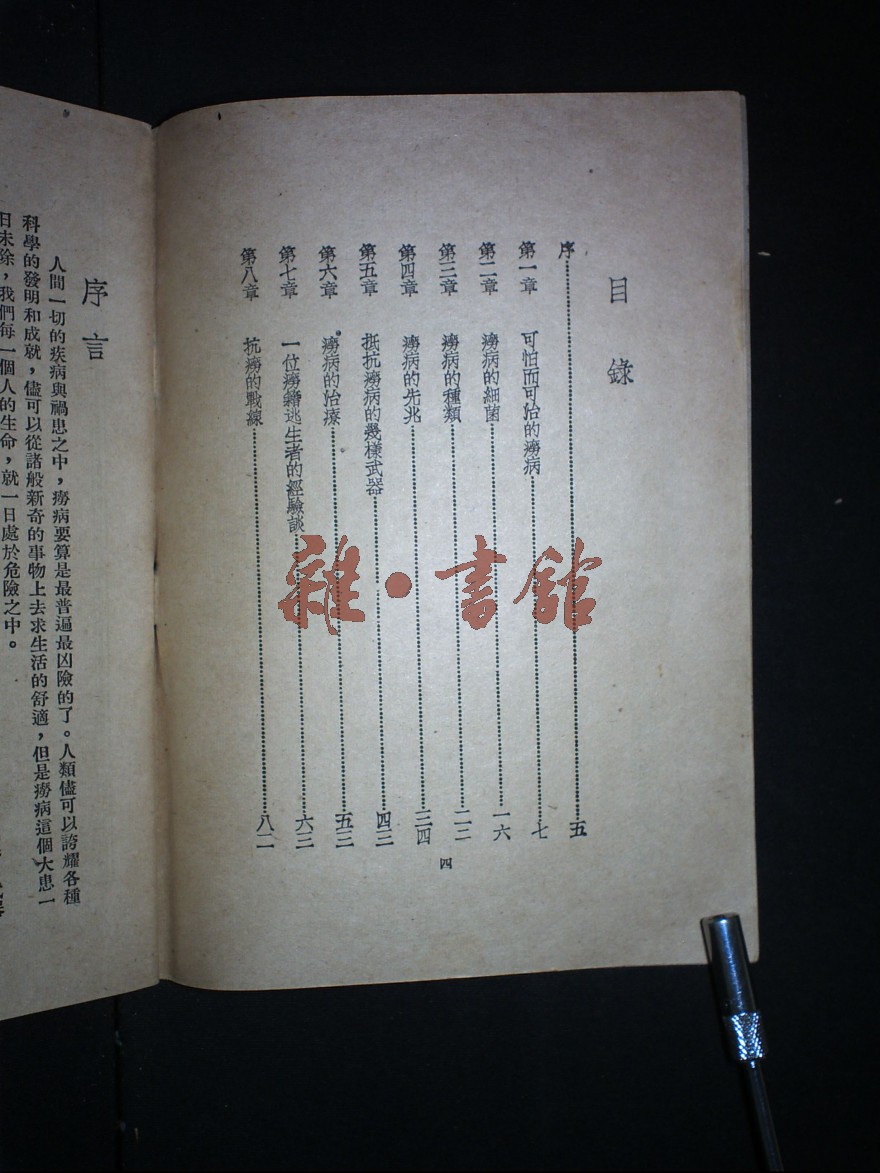 目錄
序……五
第一章 可怕而可治的癆病……七
第二章 癆病的細菌……一六
第三章 癆病的種類……二二
第四章 癆病的先兆……三四
第五章 抵抗癆病的幾樣武器……四三
第六章 癆病的治療……五三
第七章 一位癆籍逃生者的經驗談……六三
第八章 抗癆的戰線……八二
四
序言
人間一切的疾病與禍患之中，癆病要算是最普遍最凶險的了。人類儘可以誇耀各種
科學的發明和成就，儘可以從諸般新奇的事物上去求生活的舒適，但是癆病這個大患一
日未除，我們每一個人的生命，就一日處於危險之中。
雜·書館